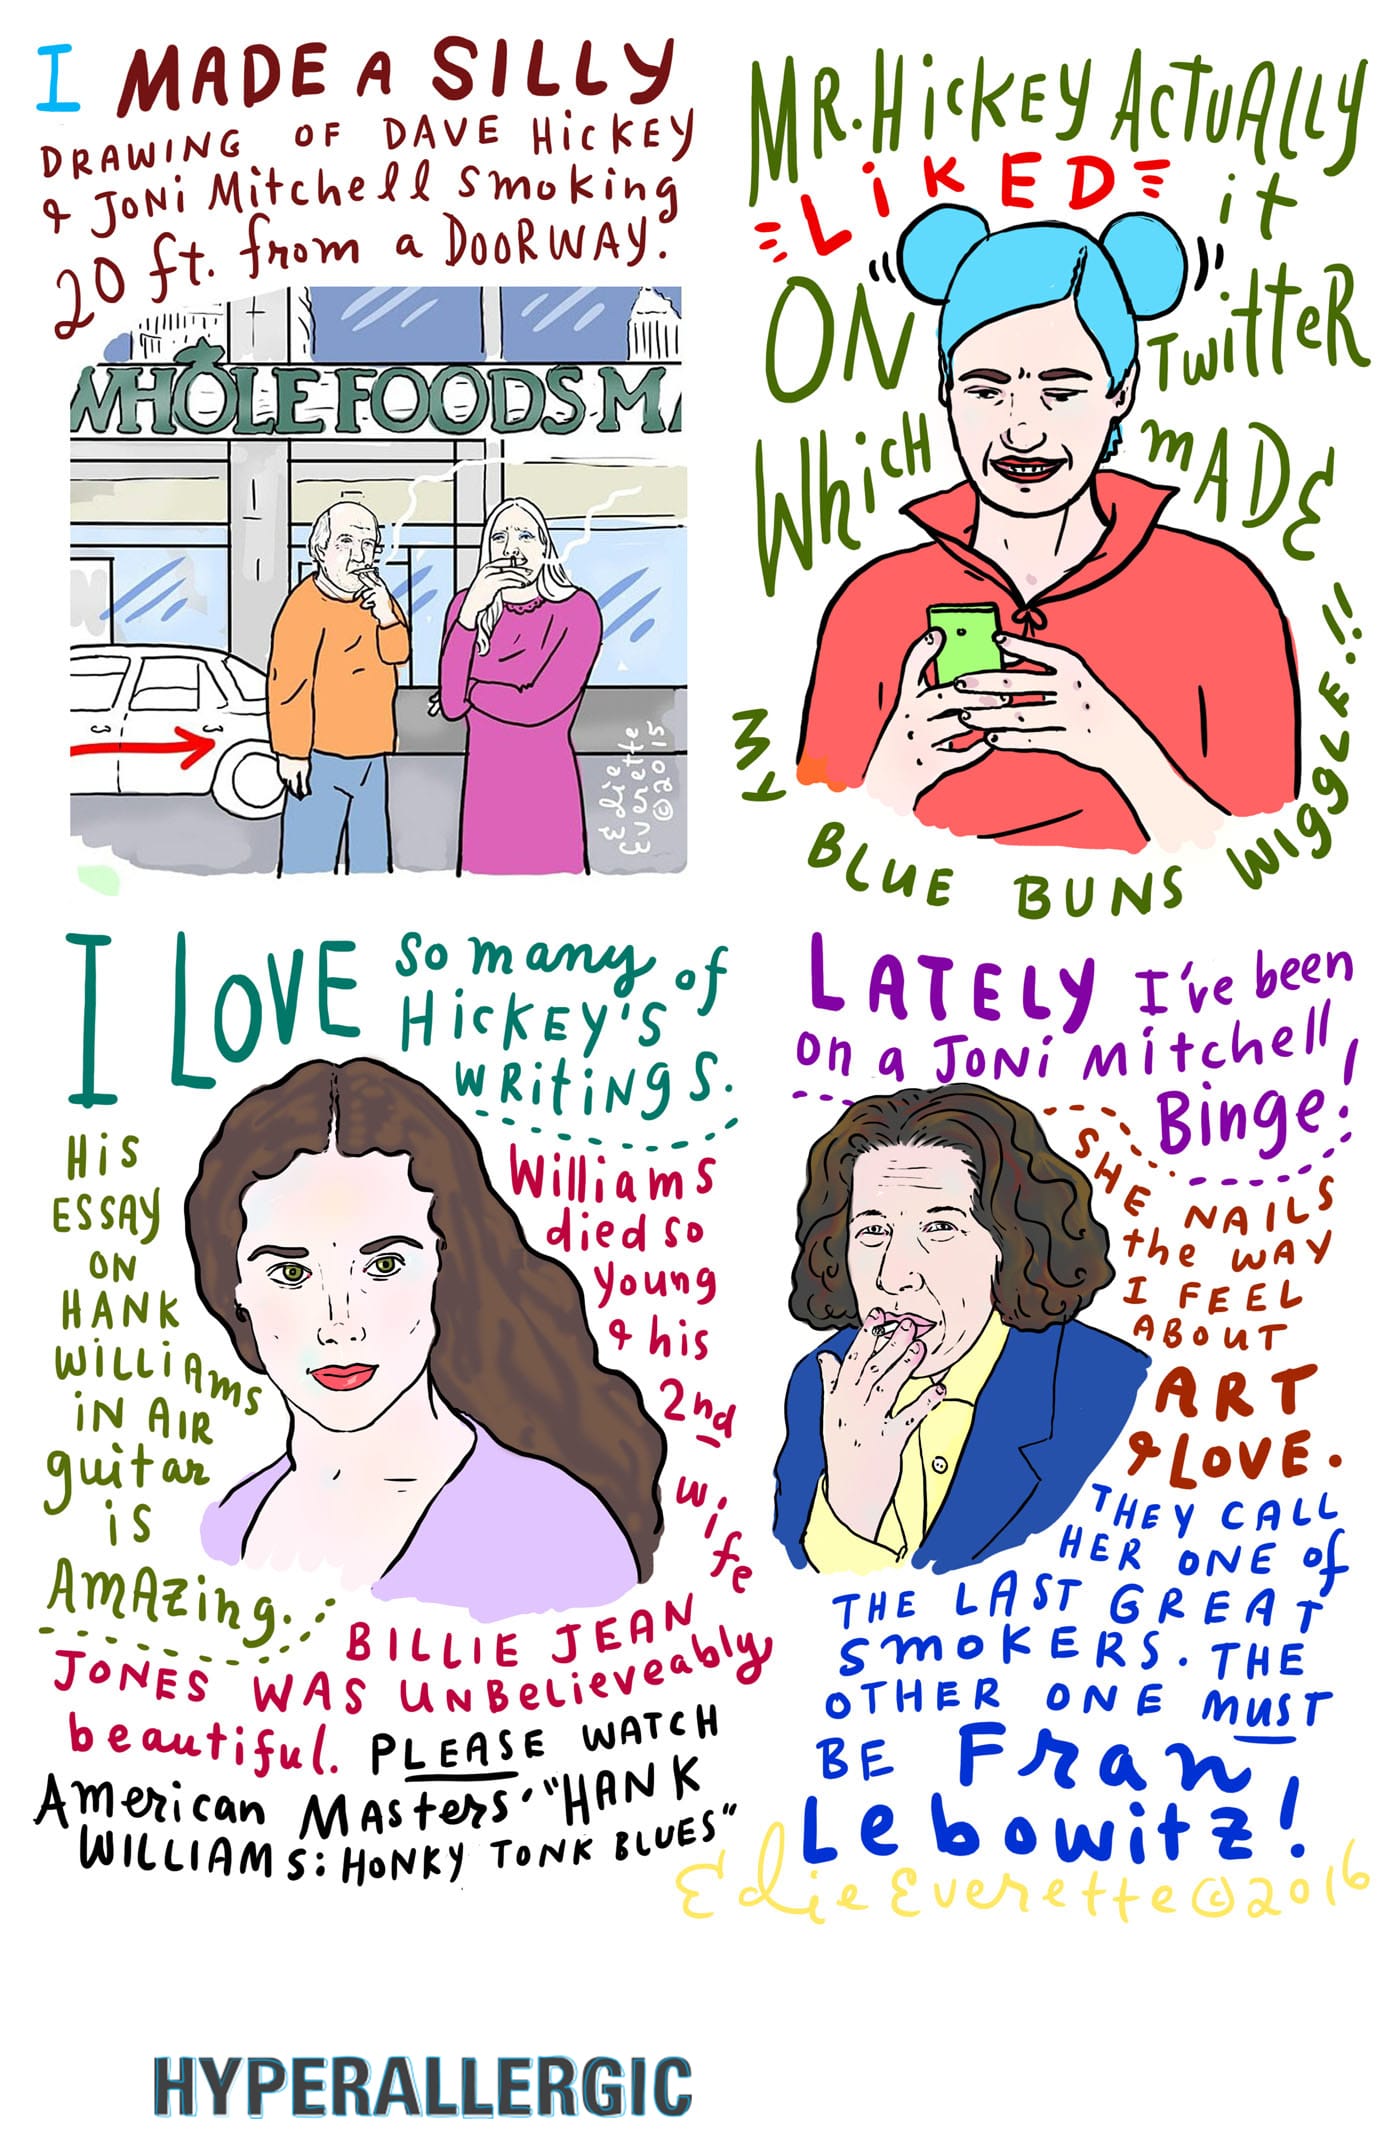 I MADE A SILLY
DRAWING OF DAVE HICKEY
& JONi Mitchell smoking
20 ft. from a DOORWAY.
WHOLE FOODS MA
Edie
Everette
©2015
MR. HiCKEY ACTUALLY
LiKED it
ON TWitteR
Which mADE
MY BLUE BUNS WiggLE!!
I LOVE so many of
HiCKEY'S
WRitiNgS.
His
ESSAY
ON
HANK
WiLLiAms
iN AIR
guitar
is
AmAzing.
Williams
died so
Young
& his
2nd
wife
BILLIE JEAN
JONES WAS UNBelieveably
beautiful. PLEASE WATCH
American Masters' "HANK
WILLIAMS: HONKY TONK BLUES"
LATELY I've been
on a JONi mitchell
Binge!
SHE NAILS
the WAY
I FEEL
ABOUT
ART
& LOVE.
THEY CALL
HER ONE of
THE LAST GREAT
SmOKERS. THE
OTHER ONE MUST
BE Fran
Lebowitz!
Edie Everette © 2016
HYPERALLERGIC